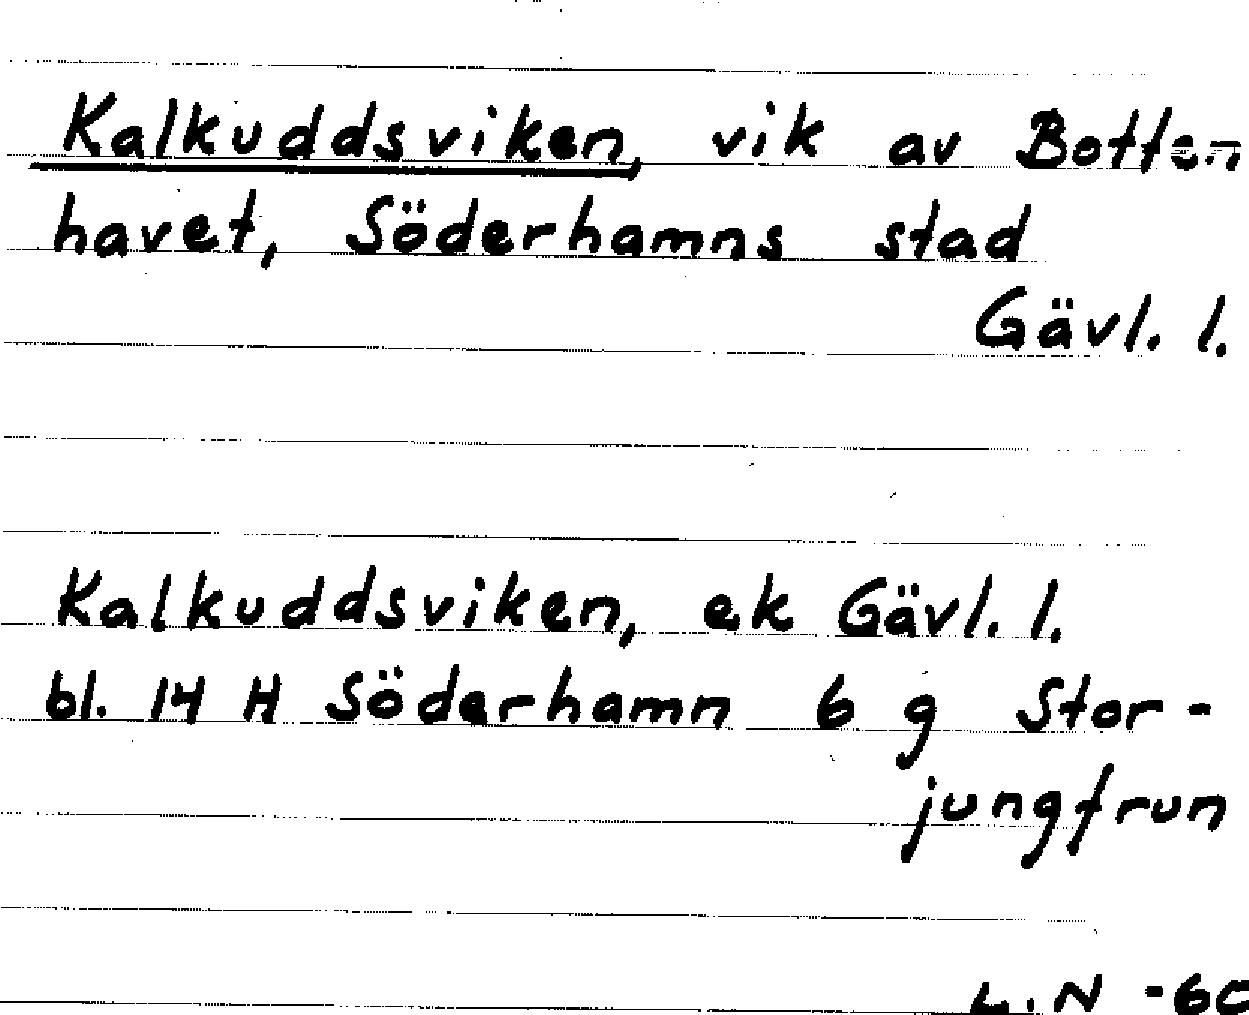 Kalkuddsviken, vik av Botten
havet, Söderhamns stad
Gävl. l.
Kalkuddsviken, ek Gävl. l.
bl. 14 H Söderhamn 6 g Stor-
jungfrun
L.N -60